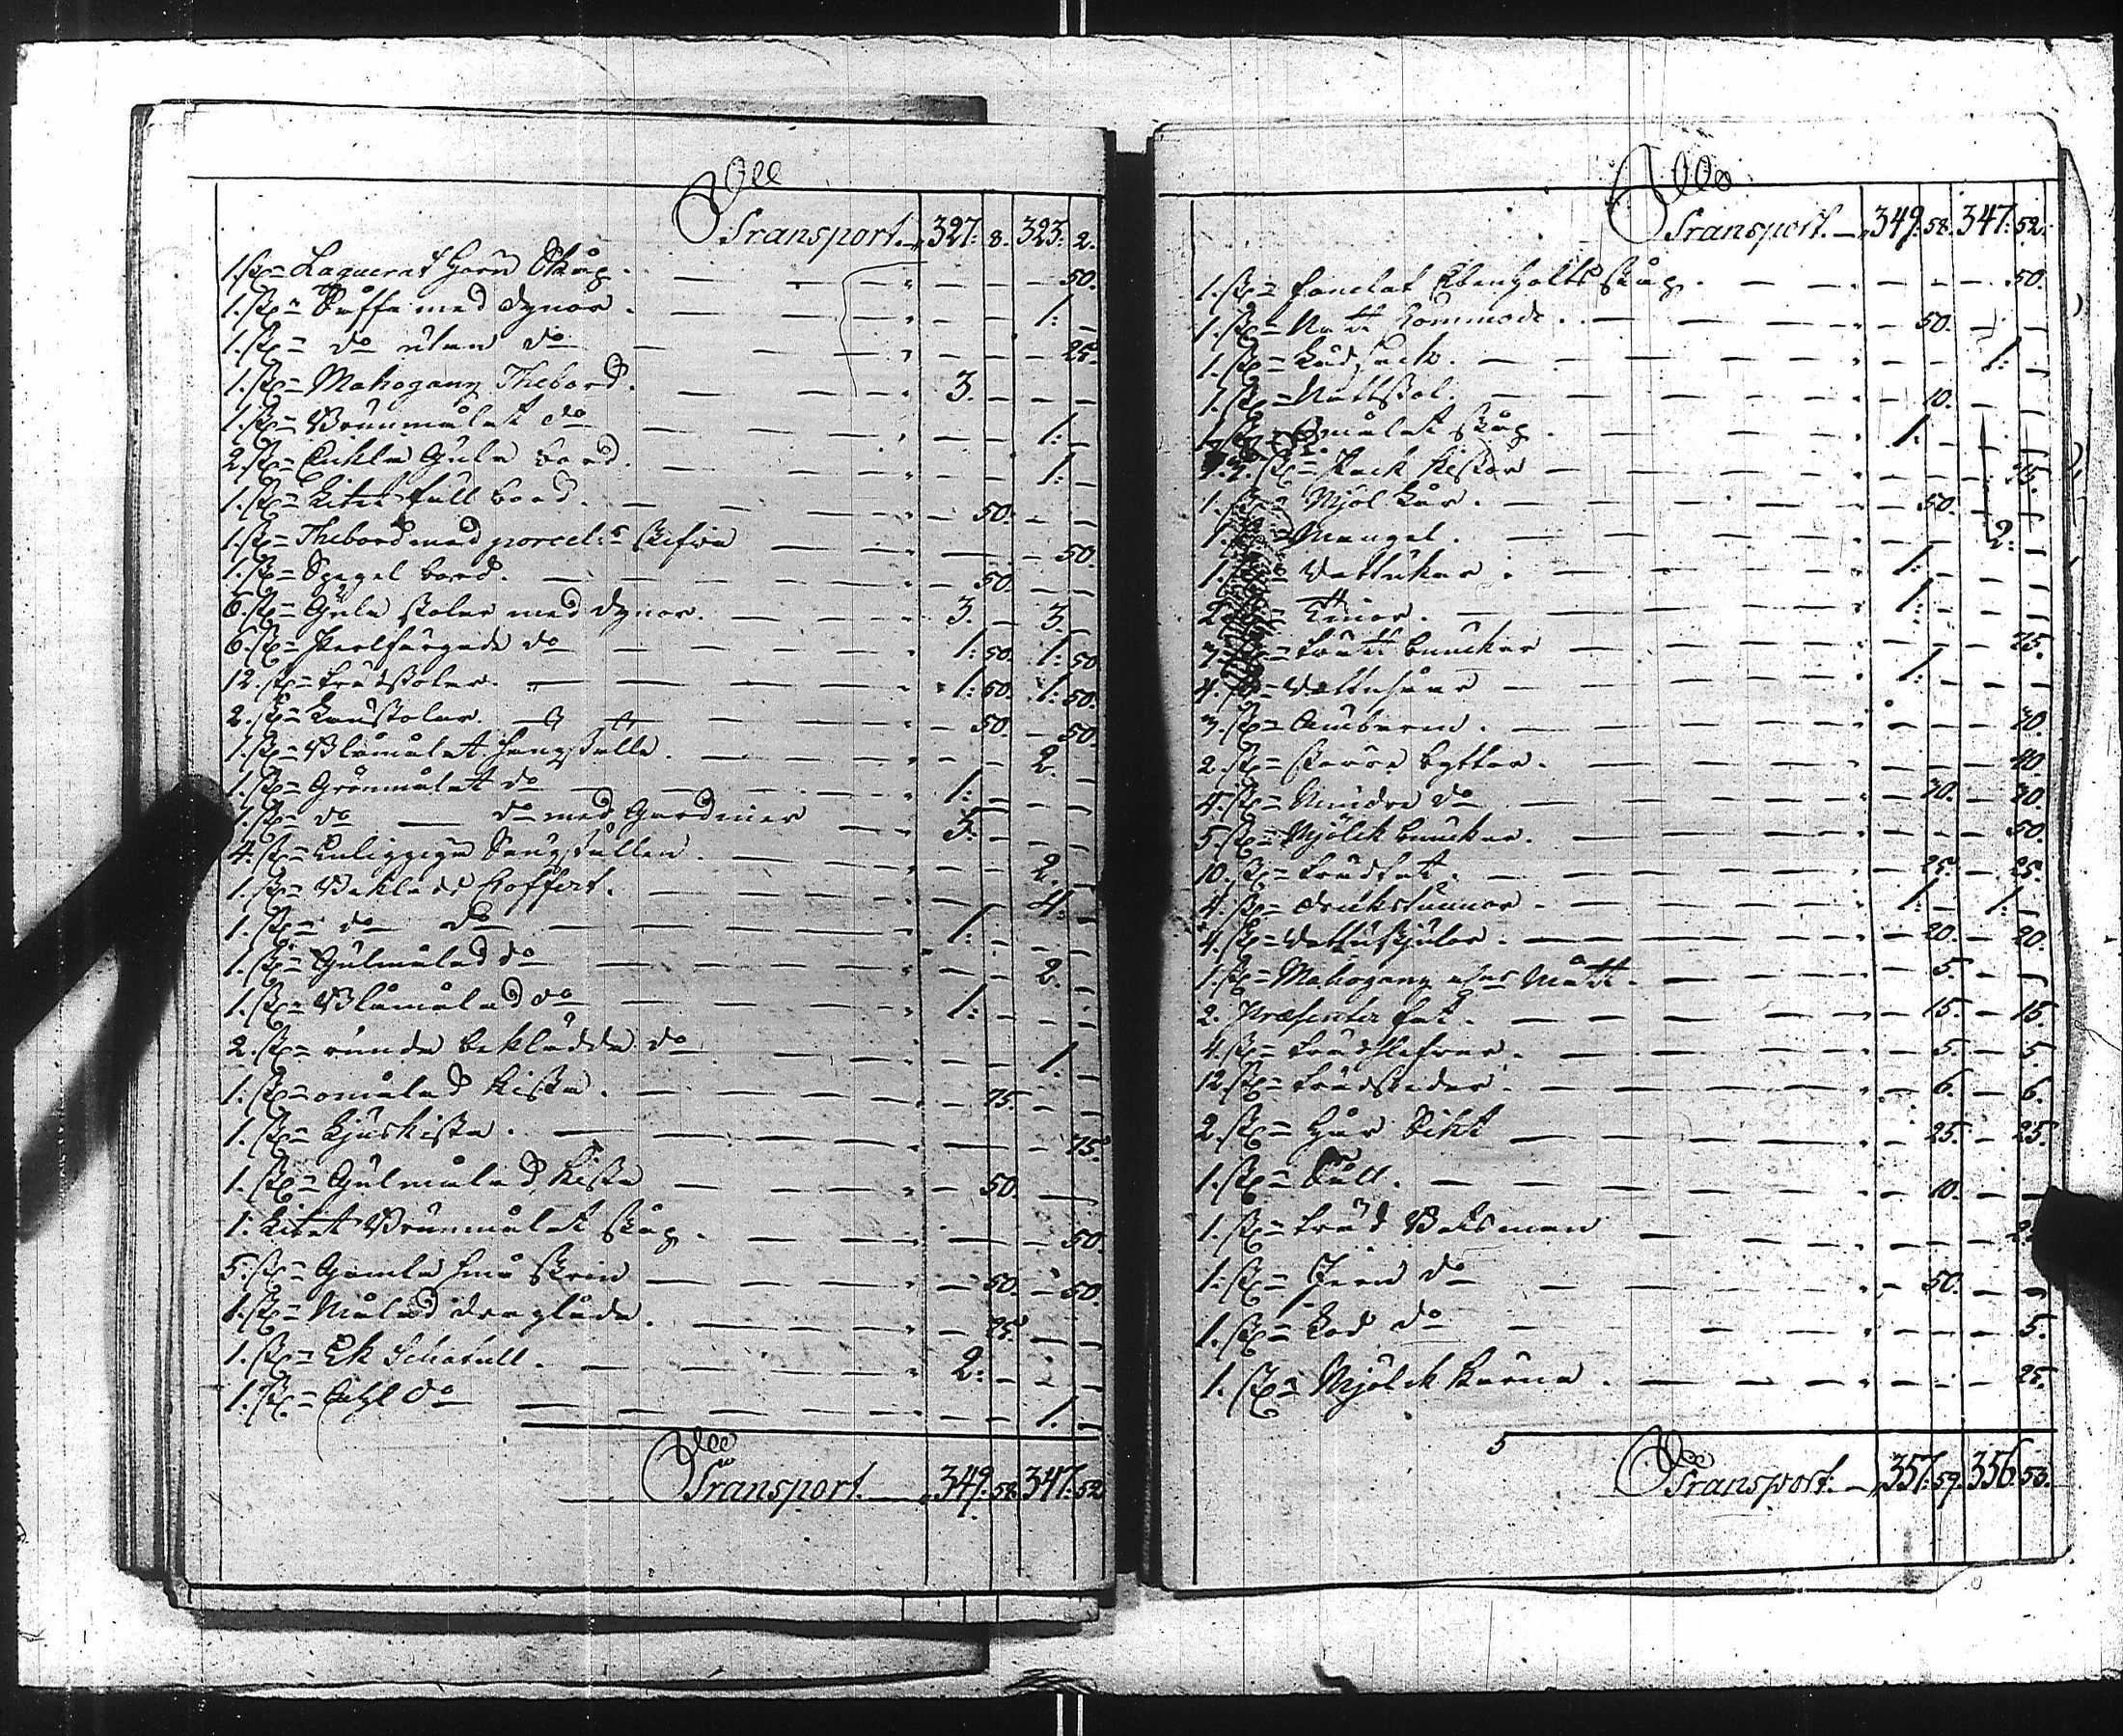 Transport 327: 8. 323: 2.
1. st= Laquerat Hörn Skåp. 50.
1. st= Soffa med dynor. 1:
1. st= do utan do 25.
1. st= Mahogany Thebord. 3.
1. st= Brunmålat do 1:
2. st= Enkla Gula bord. 1:
1. st= Litet full bord. 50.
1. st= Thebord med porcel:s skifva 50.
1. st= Spegel bord. 50.
6. st= Gula stolar med dynor. 3. 3.
6. st= Perlfärgade do 1: 50. 1: 50
12. st= trädstolar. 1: 50. 1: 50.
2. st= Länstolar. 50. 50.
1. st= Blåmålat Sengställe. 2.
1. st= Grönmålat do 1:
1. st= do do med Gardiner 5.
4. st= Enliggiga Sengställen. 2.
1. st= Beklädd Coffert. 4.
1. st= do do 1:
1. st= Gulmålad do 2.
1. st= Blåmålad do 1:
2. st= runda beklädda do 1.
1. st= omålad Kista. 75.
1. st= Ljuskista. 75.
1. st= Gulmålad Kista 50.
1. Litet Brunmålat skåp. 50.
5. st= Gamla små skrin 50. 50.
1. st= Målad draglåda. 25.
1. st= Ek Schatull. 2:
1. st= do 1.
Transport. 349: 58. 347: 52
Transport. 349: 58. 347: 52.
1. st= Ebenholts skåp. 50.
1. st= Natt Commode. 50.
1. st= 1:
1. st= Nattstol. 10.
1. st= Omålat skåp. 1:
st= Pack kistor 75.
1. st= Mjöl Lår. 50.
1. Mangel. 2:
1. Vattukar. 1:
2. = Tinor. 1:
= buncker 25.
4. = Vattusåar 1:
3. st= Ämbaren. 30.
2. st= större byttor. 40.
4. st= Mindre do 20. 20.
5. st= Mjölck buncker. 50.
10. st= trädfat. 25. 25.
4. st= drickstunnor. 1: 1:
4. st= Vattuskjulor. 20. 20
1. st= Mahogany Mått. 5.
2. Præsenter fat. 15. 15.
4. st= trädslefvar. 5. 5.
12. st= trädskedar. 6. 6.
2. st= Hår Sikt 25. 25.
1. st= Såll. 10.
1. st= träd Betsman
1. st= Jern do 50.
1. st= Lod do 5.
1. st= Mjölck kärna. 25.
Transport. 357: 59. 356: 53.